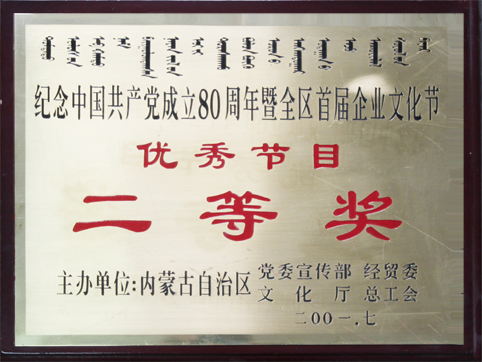 纪念中国共产党成立80周年暨全区首届企业文化节
优秀节目
二等奖
主办单位:内蒙古自治区 党委宣传部 经贸委
文化厅 总工会
二00一.七